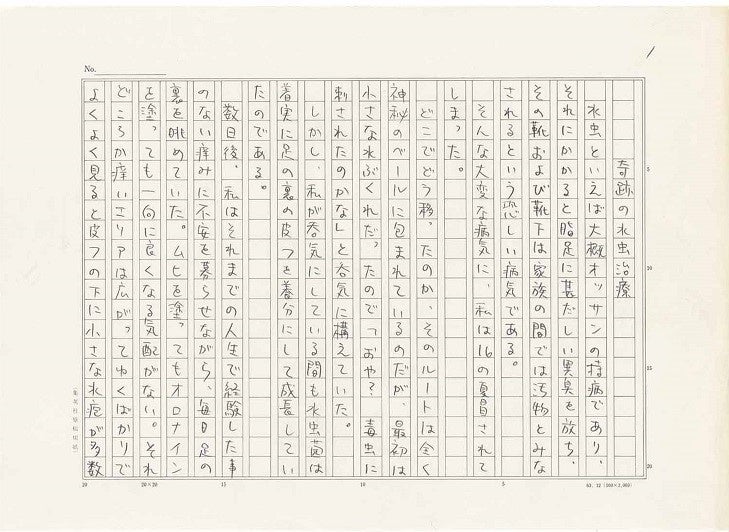 1
No.
奇跡の水虫治療
水虫といえば大概オッサンの持病であり、
それにかかると脂足に甚だしい異臭を放ち、
その靴および靴下は家族の間では汚物とみな
されるという恐しい病気である。
そんな大変な病気に、私は16の夏冒されて
しまった。
どこでどう移ったのか、そのルートは全く
神秘のベールに包まれているのだが、最初は
小さな水ぶくれだったので「おや? 毒虫に
刺されたのかな」と呑気に構えていた。
しかし、私が呑気にしている間も水虫菌は
着実に足の裏の皮フを養分にして成長してい
たのである。
数日後、私はそれまでの人生で経験した事
のない痒みに不安を募らせながら、毎日足の
裏を眺めていた。ムヒを塗ってもオロナイン
を塗っても一向に良くなる気配がない。それ
どころか痒いエリアは広がってゆくばかりで
よくよく見ると皮フの下に小さな水疱が多数
5
10
15
20
5
10
15
20×20
20
(集英社原稿用紙)